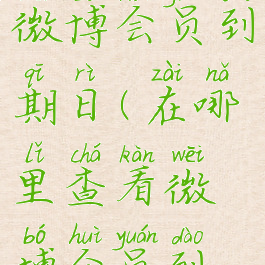 微博会员到
qī rì zài nǎ
期日(在哪
lǐ chá kàn wēi
里查看微
bó huì yuán dào